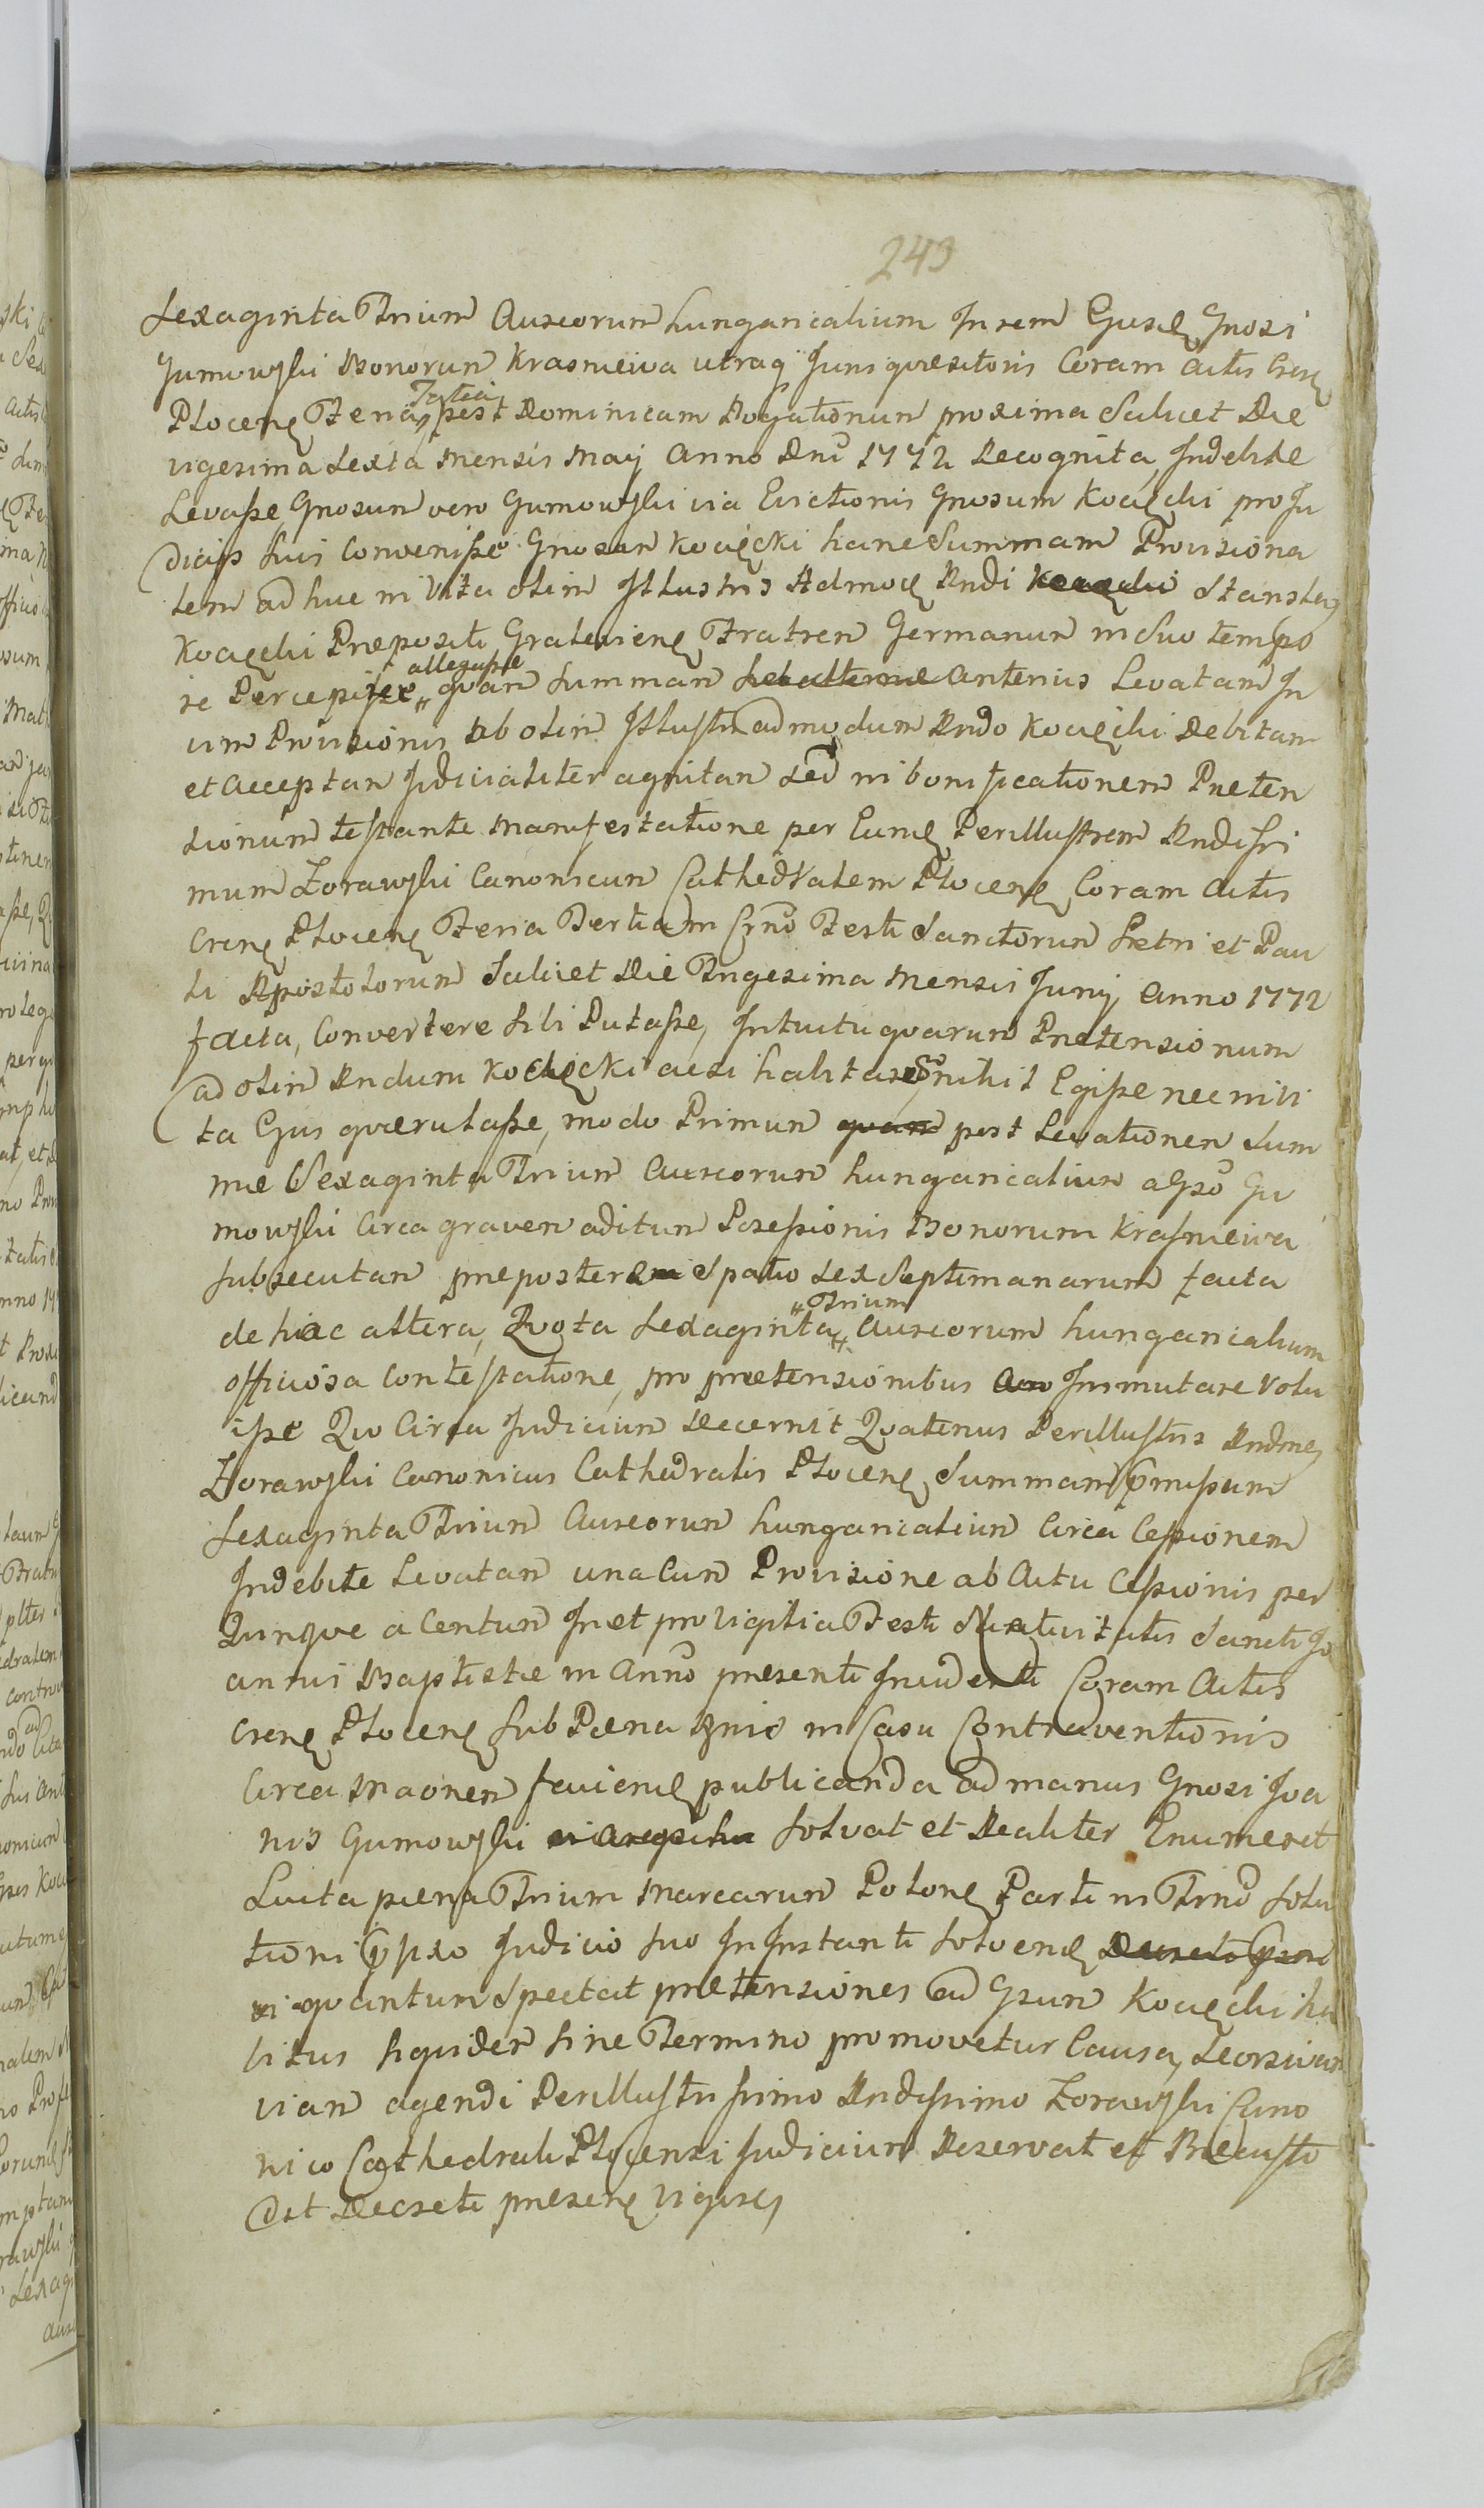 243
Sexaginta Trium Aureorum hungaricalium In rem Ejusd Gnosi
Gumowski Bonorum Krasniewa utraq Juris quaesitoris Coram Actis Cren
Plocen Feria Tertia post Dominicam Rogationum proxima Scilicet Die
vigesima Sexta Mensis Maij Anno Dni 1772 Recognita, Indebite
Levasse, Gnosum vero Gumowski via Evictionis Gnosum Kocięcki pro Ju
dicijs suis Convenisse Gnosum Kocięcki hanc Summam Provisiona
lem ad huc in Vita olim Illustris Admod Rndi Stanislaj
Kocięcki Praepositi Fratrem Germanum in Suo tempo
re Percepisse allegasse quam Summam Anterius Levatam In
vim Provisionis ab olim Illustri admodum Rndo Kocięcki Debitam
et acceptam Judicialiter agnitam Sed in bonificationem Praeten
sionum testante Manifestatione per Eund Perillustrem Rndissi
mum Zorawski Canonicum Cathedralem Plocen Coram Actis
Cren Plocen Feria Tertia in Crno Festi Sanctorum Petri et Pau
li Apostolorum Scilicet Die Trigesima Mensis Junij Anno 1772
facta, Convertere sibi Putasse, Intuitu quarum Praetensionum
ad olim Rndum Kocięcki acsi habitarum nihil Egisse nec in vi
ta Ejus querulasse, modo Primum post Levationem Sum
mae Sexaginta Trium Aureorum hungaricalium a Gso Gu
mowski Circa gravem aditum Possessionis Bonorum Krasniewa
subsecutam praepostere Spatio Sex Septimanarum facta
de hac altera, Quota Sexaginta Trium Aureorum hungaricalium
officiosa Contestatione, pro praetensionibus Immutare Volu
isse Quo Circa Judicium Decernit Quatenus Perillustris Rndmus
Zorawski Canonicus Cathedralis Plocen Summam praemissam
Sexaginta Trium Aureorum hungaricalium Circa Cessionem
Indebite Levatam una Cum Provisione ab Actu Cessionis per
Quinque a Centum In et pro Vigilia Festi Nativitatis Sancti Jo
annis Baptistae in Anno praesenti Incidenti Coram Actis
Cren Plocen sub Paena Bnis in Casu Contraventionis
Circa Maonem faciend publicanda ad manus Gnosi Joa
nis Gumowski solvat et Realiter Enumeret
Luita paena Trium Marcarum Polon Parti in Trno solu
tioni ipso Judicio suo In Instanti solvend
quantum Spectat praetensiones ad Gsum Kocięcki ha
bitas siquidem sine Termino promovetur Causa, Seorsivam
viam agendi Perillustrissimo Rndissimo Zorawski Cano
nico Cathedrali Plocensi Judicium Reservat et Praecusto
dit Decreti praesen vigore